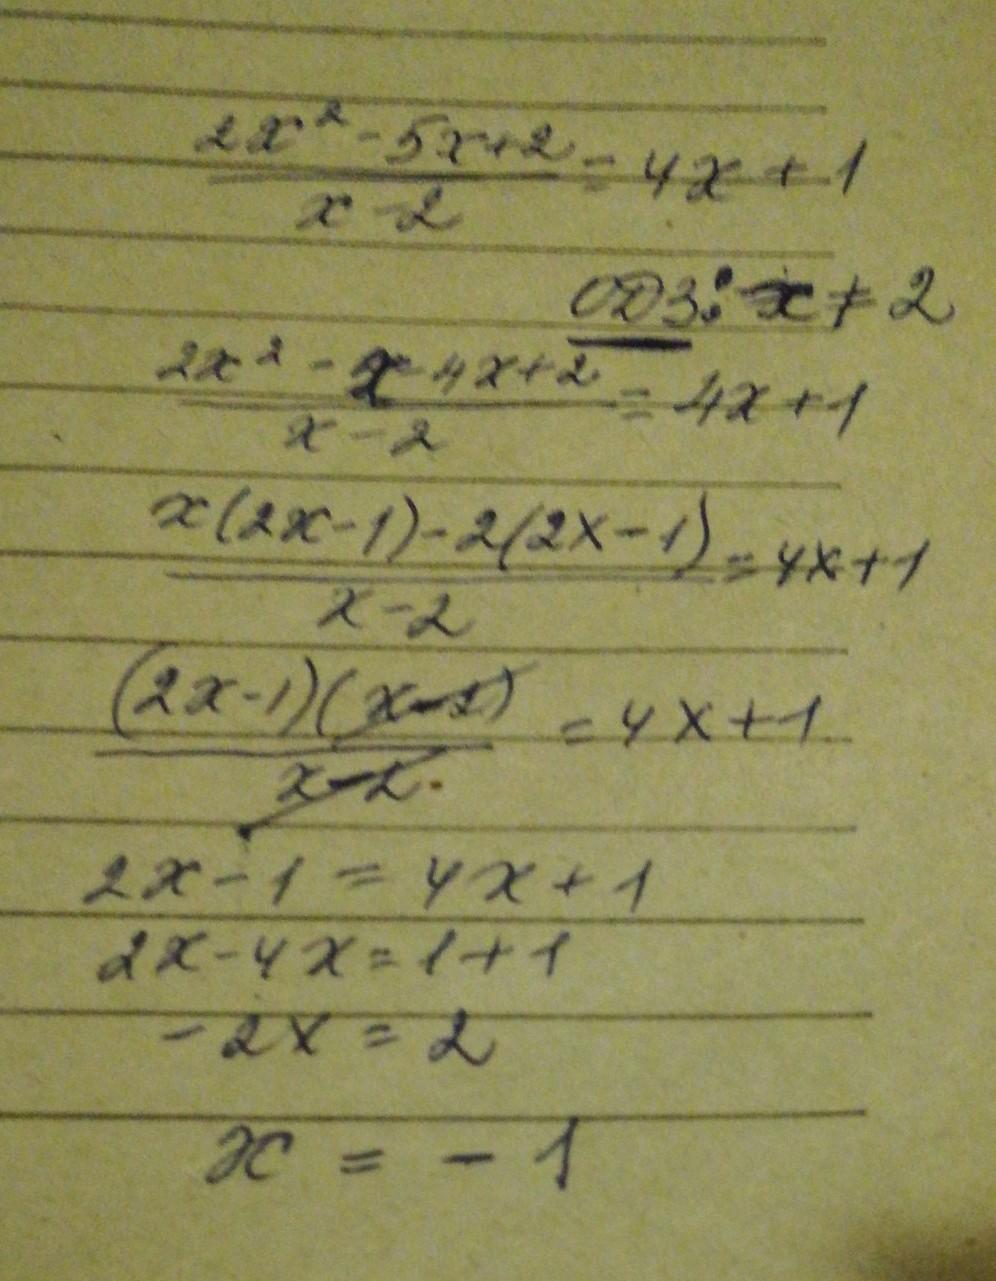 (2x² - 5x + 2)/(x - 2) = 4x + 1
ОДЗ: x ≠ 2
(2x² - x - 4x + 2)/(x - 2) = 4x + 1
(x(2x - 1) - 2(2x - 1))/(x - 2) = 4x + 1
((2x - 1)(x - 2))/(x - 2) = 4x + 1
2x - 1 = 4x + 1
2x - 4x = 1 + 1
-2x = 2
x = -1